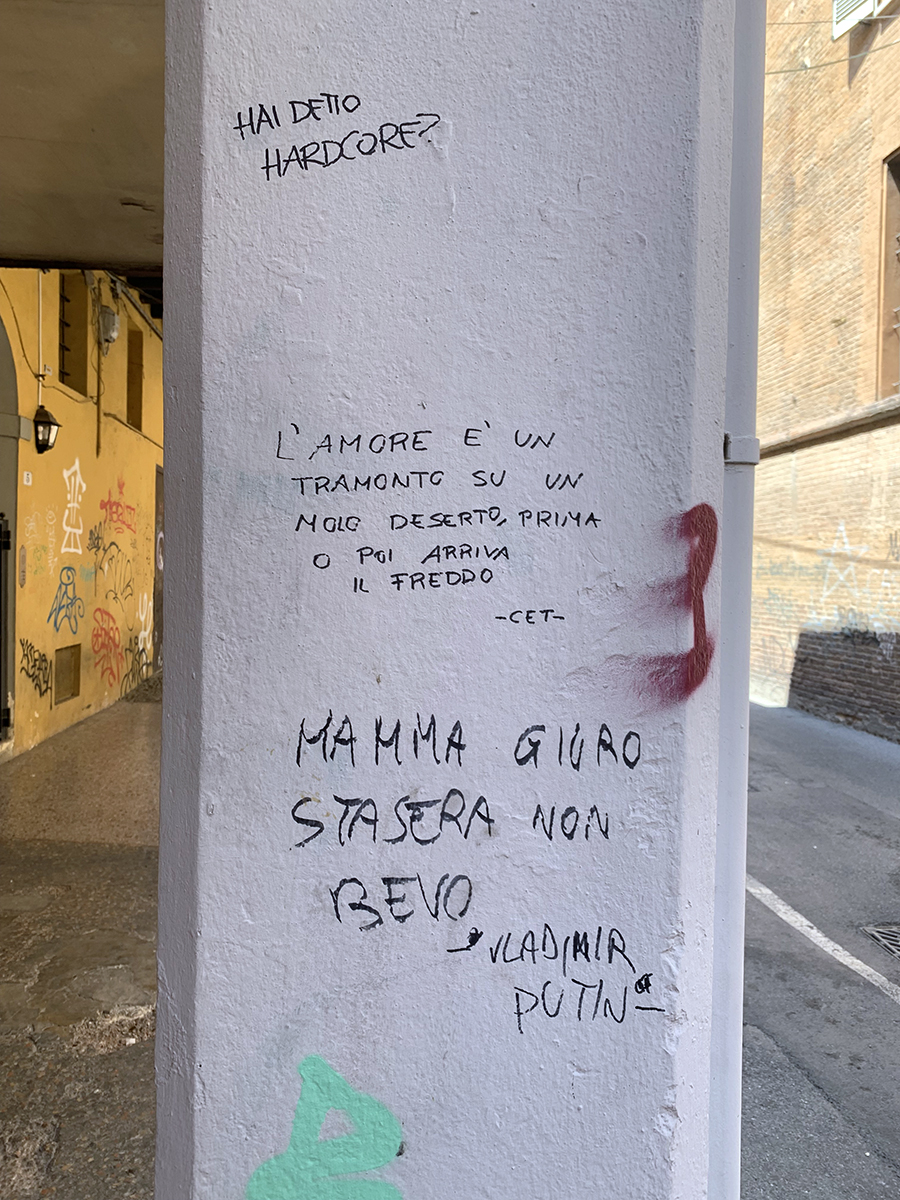 HAI DETTO
HARDCORE?
L'AMORE E' UN
TRAMONTO SU UN
MOLO DESERTO, PRIMA
O POI ARRIVA
IL FREDDO
-CET-
MAMMA GIURO
STASERA NON
BEVO
-"VLADIMIR
PUTIN"-